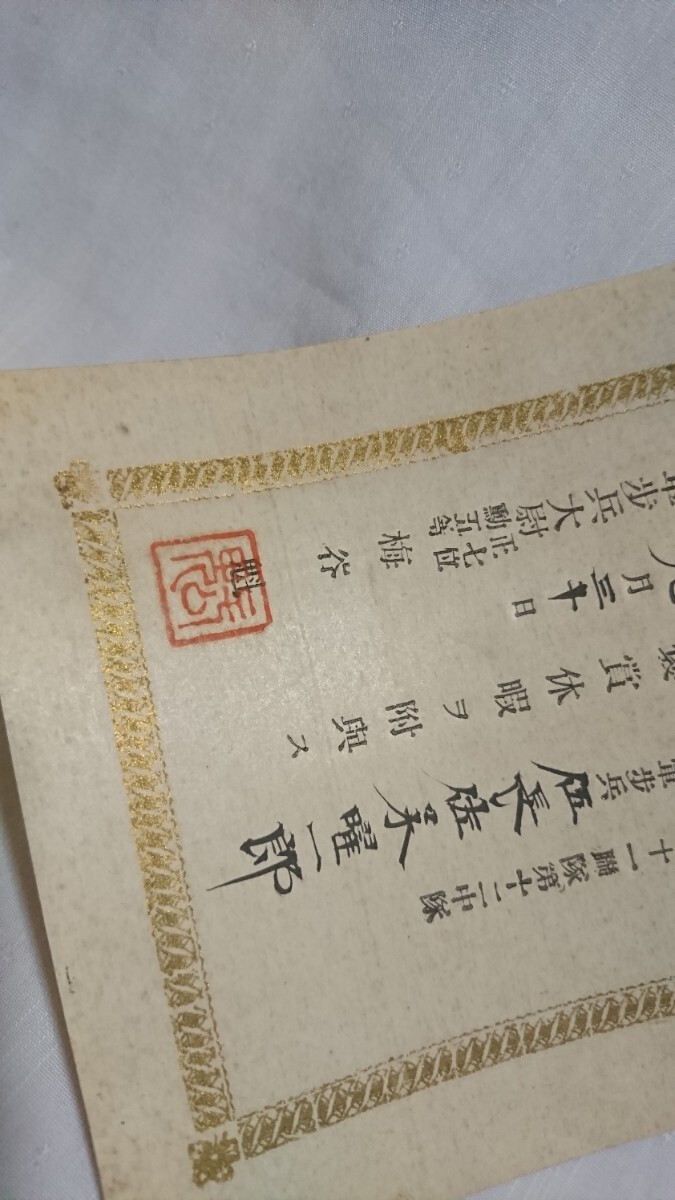 十一聯隊第十二中隊
軍步兵伍長佐々木曜一郎
褒賞休暇ヲ附與ス
月三十日
步兵大尉
正七位
勳五等
梅谷魁